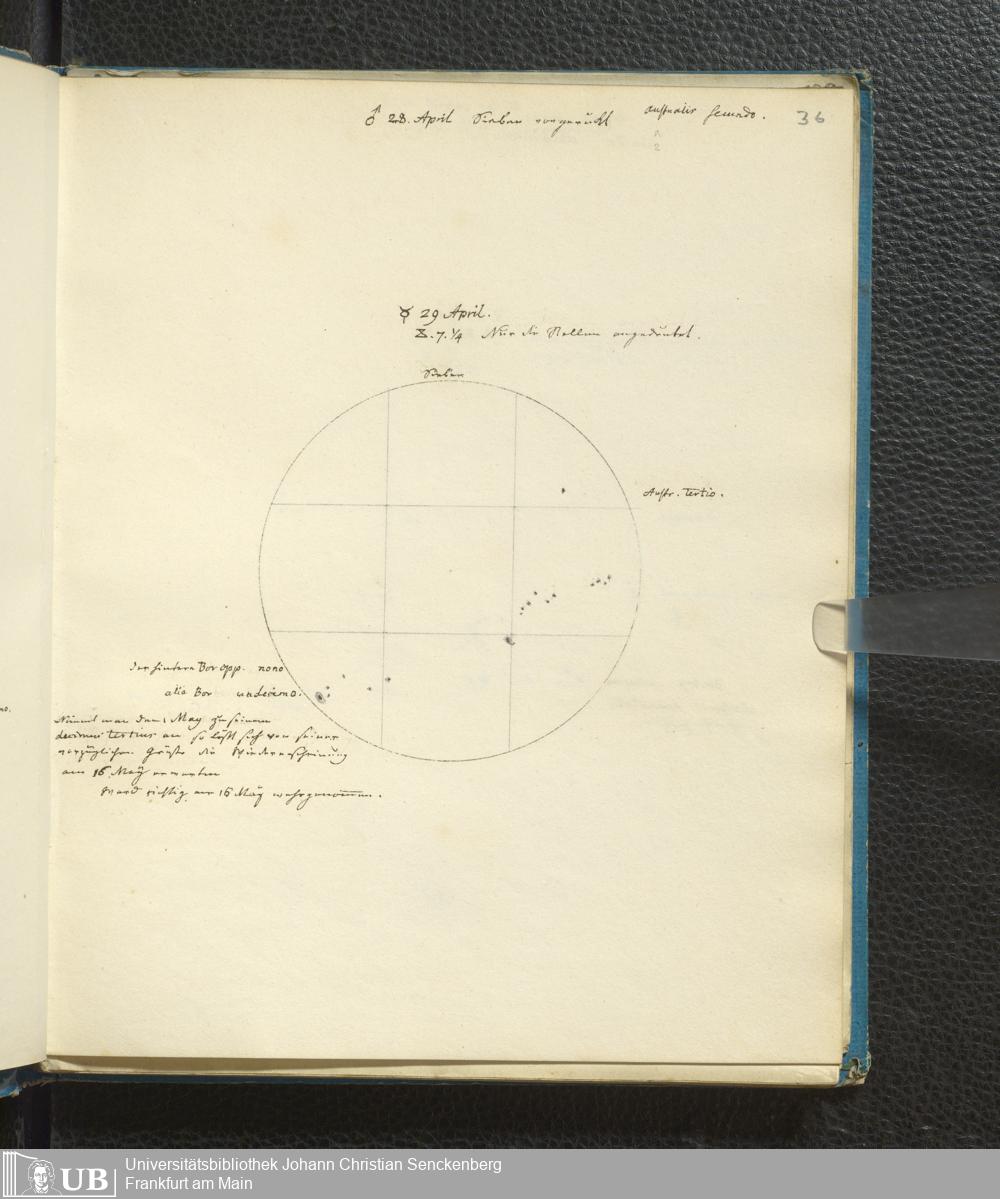 ♂ 28. April Sieben vorgerückt australis secundo. 36
2
☿ 29 April.
7. 1/4 Nur die Stellen angedeutet.
Sieben
Austr. tertio.
der hintere Bor opp. nono
alia Bor undecimo.
Nimmt man den 1 May zu seinem
decimus tertius an so läßt sich von seiner
vorzüglichen Größe die Wiedererscheinung
am 16 May erwarten
Ward richtig am 16 May wahrgenommen.
Universitätsbibliothek Johann Christian Senckenberg
Frankfurt am Main
UB